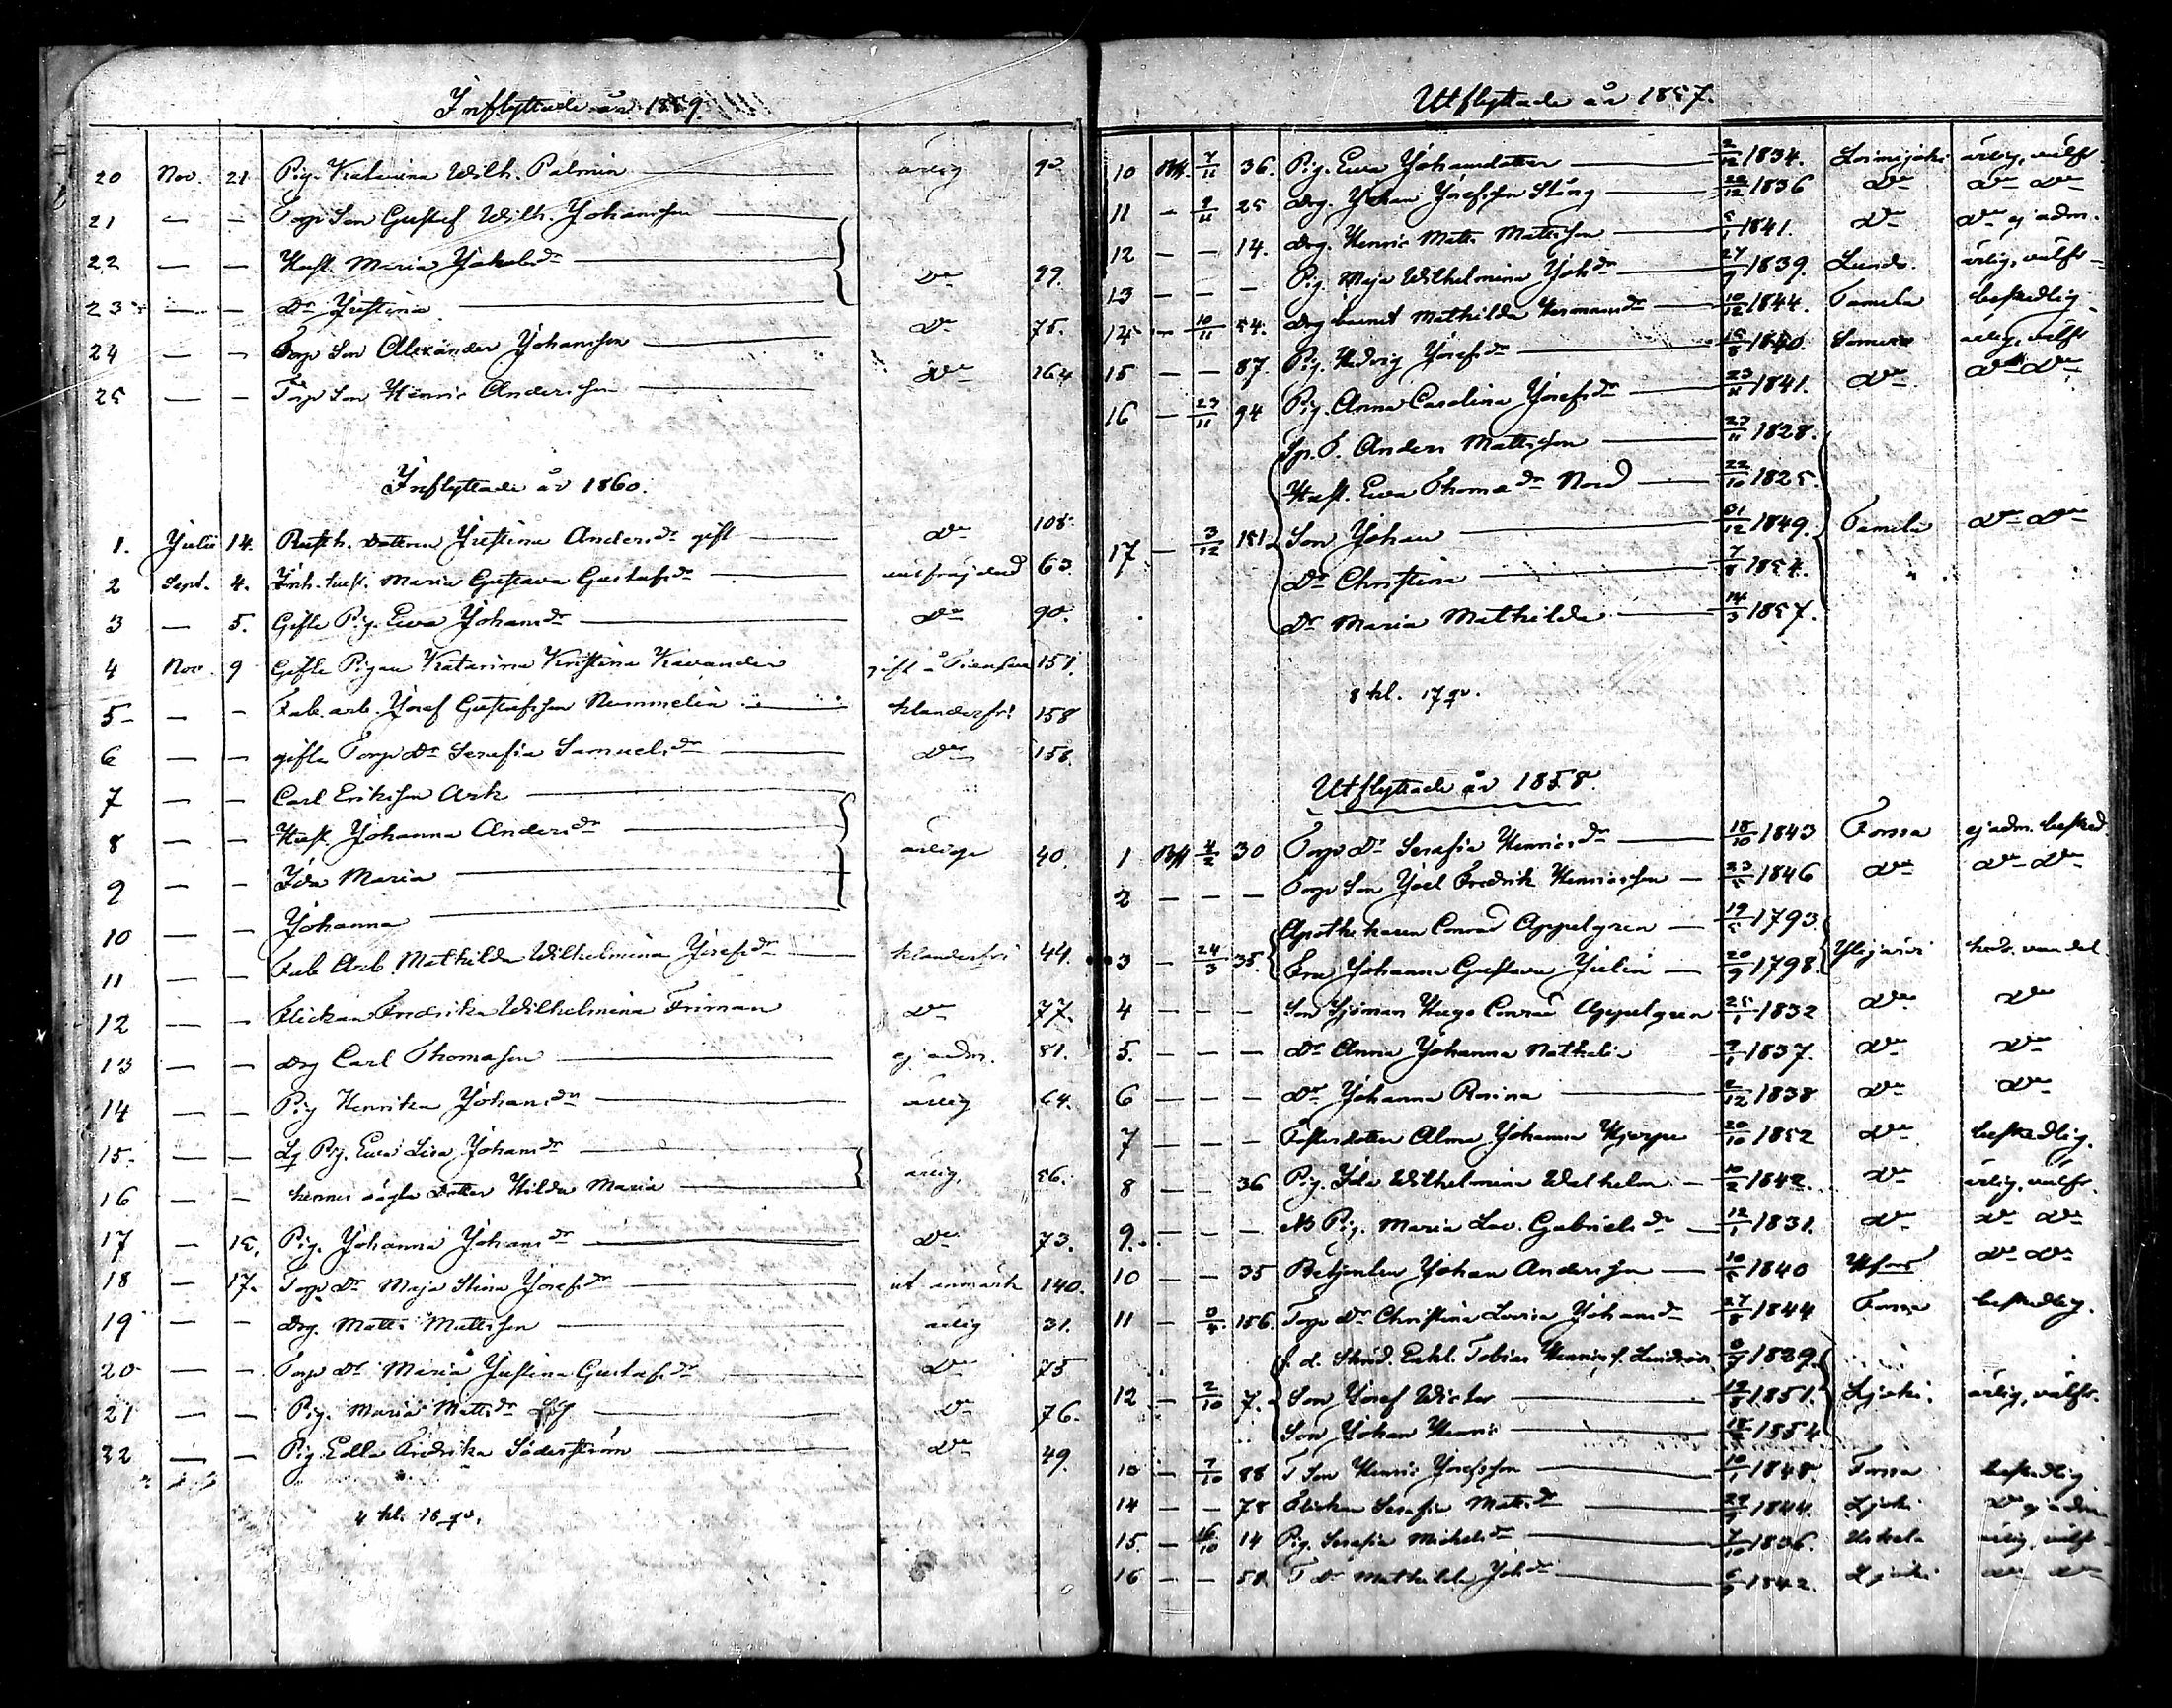 Inflyttade år 1859.
20 Nov. 21 Pig. Katarina Wilh. Palmin ärlig 92
21 — — Torp Son Gustaf Wilh. Johansson
22 — — Hust. Maria Jakobsdr D:o 99.
23 — — Dr Justina
24 — — Torp Son Alexander Johansson D:o 75.
25 — — Torp Son Henric Andersson D:o 164
Inflyttade år 1860.
1. Julii 14. Rusth. Dottren Justina Andersdr gift D:o 108
2 Sept. 4. Inh. hust. Maria Gustava Gustafsdr 63.
3 — 5. Gifte Pig. Eva Johansdr D:o 90.
4 Nov. 9 Gifte Pigan Katarina Kristina Kavander gift å 151.
5 — — Fab. arb. Josef Gustafsson Nummelin klanderfri 158
6 — — gifte Torp Dr Serafia Samuelsdr D:o 158.
7 — — Carl Eriksson Ark
8 — — Hust. Johanna Andersdr ärliga 40.
9 — — Ida Maria
10 — — Johanna
11 — — Fab Arb Mathilda Wilhelmina Josefsdr klanderfri 44.
12 — — Flickan Fredrika Wilhelmina Friman D:o 77.
13 — — Drg Carl Thomasson ej adm. 81.
14 — — Pig Henrika Johansdr ärlig 64.
15. — — Lg Pig. Eva Lisa Johansdr ärlig. 56.
16 — — hennes oägta Dotter Hilda Maria
17 — 15. Pig. Johanna Johansdr D:o 73.
18 — 17. Torp. Dr Maja Stina Josefsdr ut anmärk 140.
19 — — Drg. Matts Mattsson ärlig 31.
20 — — Torp Dr Maria Justina Gustafsdr D:o 75
21 — — Pig. Maria Mattsdr D:o 76.
22 — — Pig. Edla Fredrika Söderström D:o 49.
4 kl. 18 qv.
Utflyttade år 1857.
10 Nov. 7/11 36. Pig. Eva Johansdotter 2/12 1834. Loimijoki ärlig, välfr.
11 — 9/11 25 Drg. Johan Josefsson Stång 22/12 1836 D:o D:o D:o
12 — — 14. Drg. Henric Matts Mattsson 5/1 1841. D:o D:o ej adm.
13 — — — Pig. Maja Wilhelmina Johdr 27/9 1839. Lundo. ärlig, välfr
14 — 10/11 54. Drg barnet Mathilda Hermansdr 10/12 1844. Tamela beskedlig
15 — — 87. Pig. Hedvig Josefsdr 15/8 1840. Somero ärlig, välfr
16 — 23/11 94 Pig. Anna Carolina Josefsdr 23/11 1841. D:o D:o D:o
Sp. T. Anders Mattsson 23/11 1828.
Hust. Eva Thomædr Nord 22/10 1825.
17 — 3/12 151 Son Johan 31/12 1849. Tamela D:o D:o
Dr Christina 7/8 1854.
Dr Maria Mathilda 14/3 1857.
8 kl. 17 qv.
Utflyttade år 1858.
1 4/2 30 Torp Dr Serafia Henricsdr 18/10 1843 Forssa ej adm. besked.
2 — — — Torp Son Joel Fredrik Henricsson 23/5 1846 D:o D:o D:o
3 — 24/3 35. Apothekaren Conrad Appelgren 19/5 1793.
Fru Johanna Gustava Julin 20/9 1798. Ylöjärvi
4 — — — Son Sjöman Hugo Conrad Appelgren 25/1 1832 D:o D:o
5. — — — Dr Anna Johanna Nathalia 9/1 1837. D:o D:o
6 — — — Dr Johanna Rosina 2/12 1838 D:o D:o
7 — — — Fosterdotter Alma Johanna Hjerpe 20/10 1852 D:o beskedlig.
8 — — 36 Pig. Ida Wilhelmina Walhelm 10/2 1842. D:o ärlig, välfr.
9. — — — Pig. Maria Lov. Gabrielsdr 12/1 1831. D:o D:o D:o
10 — — 35 Betjenten Johan Andersson 10/5 1840 Hfors D:o D:o
11 — 156. Torp Dr Christina Lovisa Johansdr 27/8 1844 Forssa beskedlig.
f. d. Skräd. Enkl. Tobias Henrics. Lindroos 1829.
12 — 2/10 7. Son Josef Wictor 1851. Ljuki ärlig, välfr.
Son Johan Henric 1854
13 — 7/10 88 T Son Henric Josefsson 10/1 1848. Forssa beskedlig
14 — — 78 Flickan Serafia Mattsdr 1844. D:o ej adm
15. — 16/10 14 Pig. Serafia Michelsdr 7/10 1836. Uskela ärlig, välfr
16 — — 50 T Dr Mathilda Johdr 1842. D:o D:o